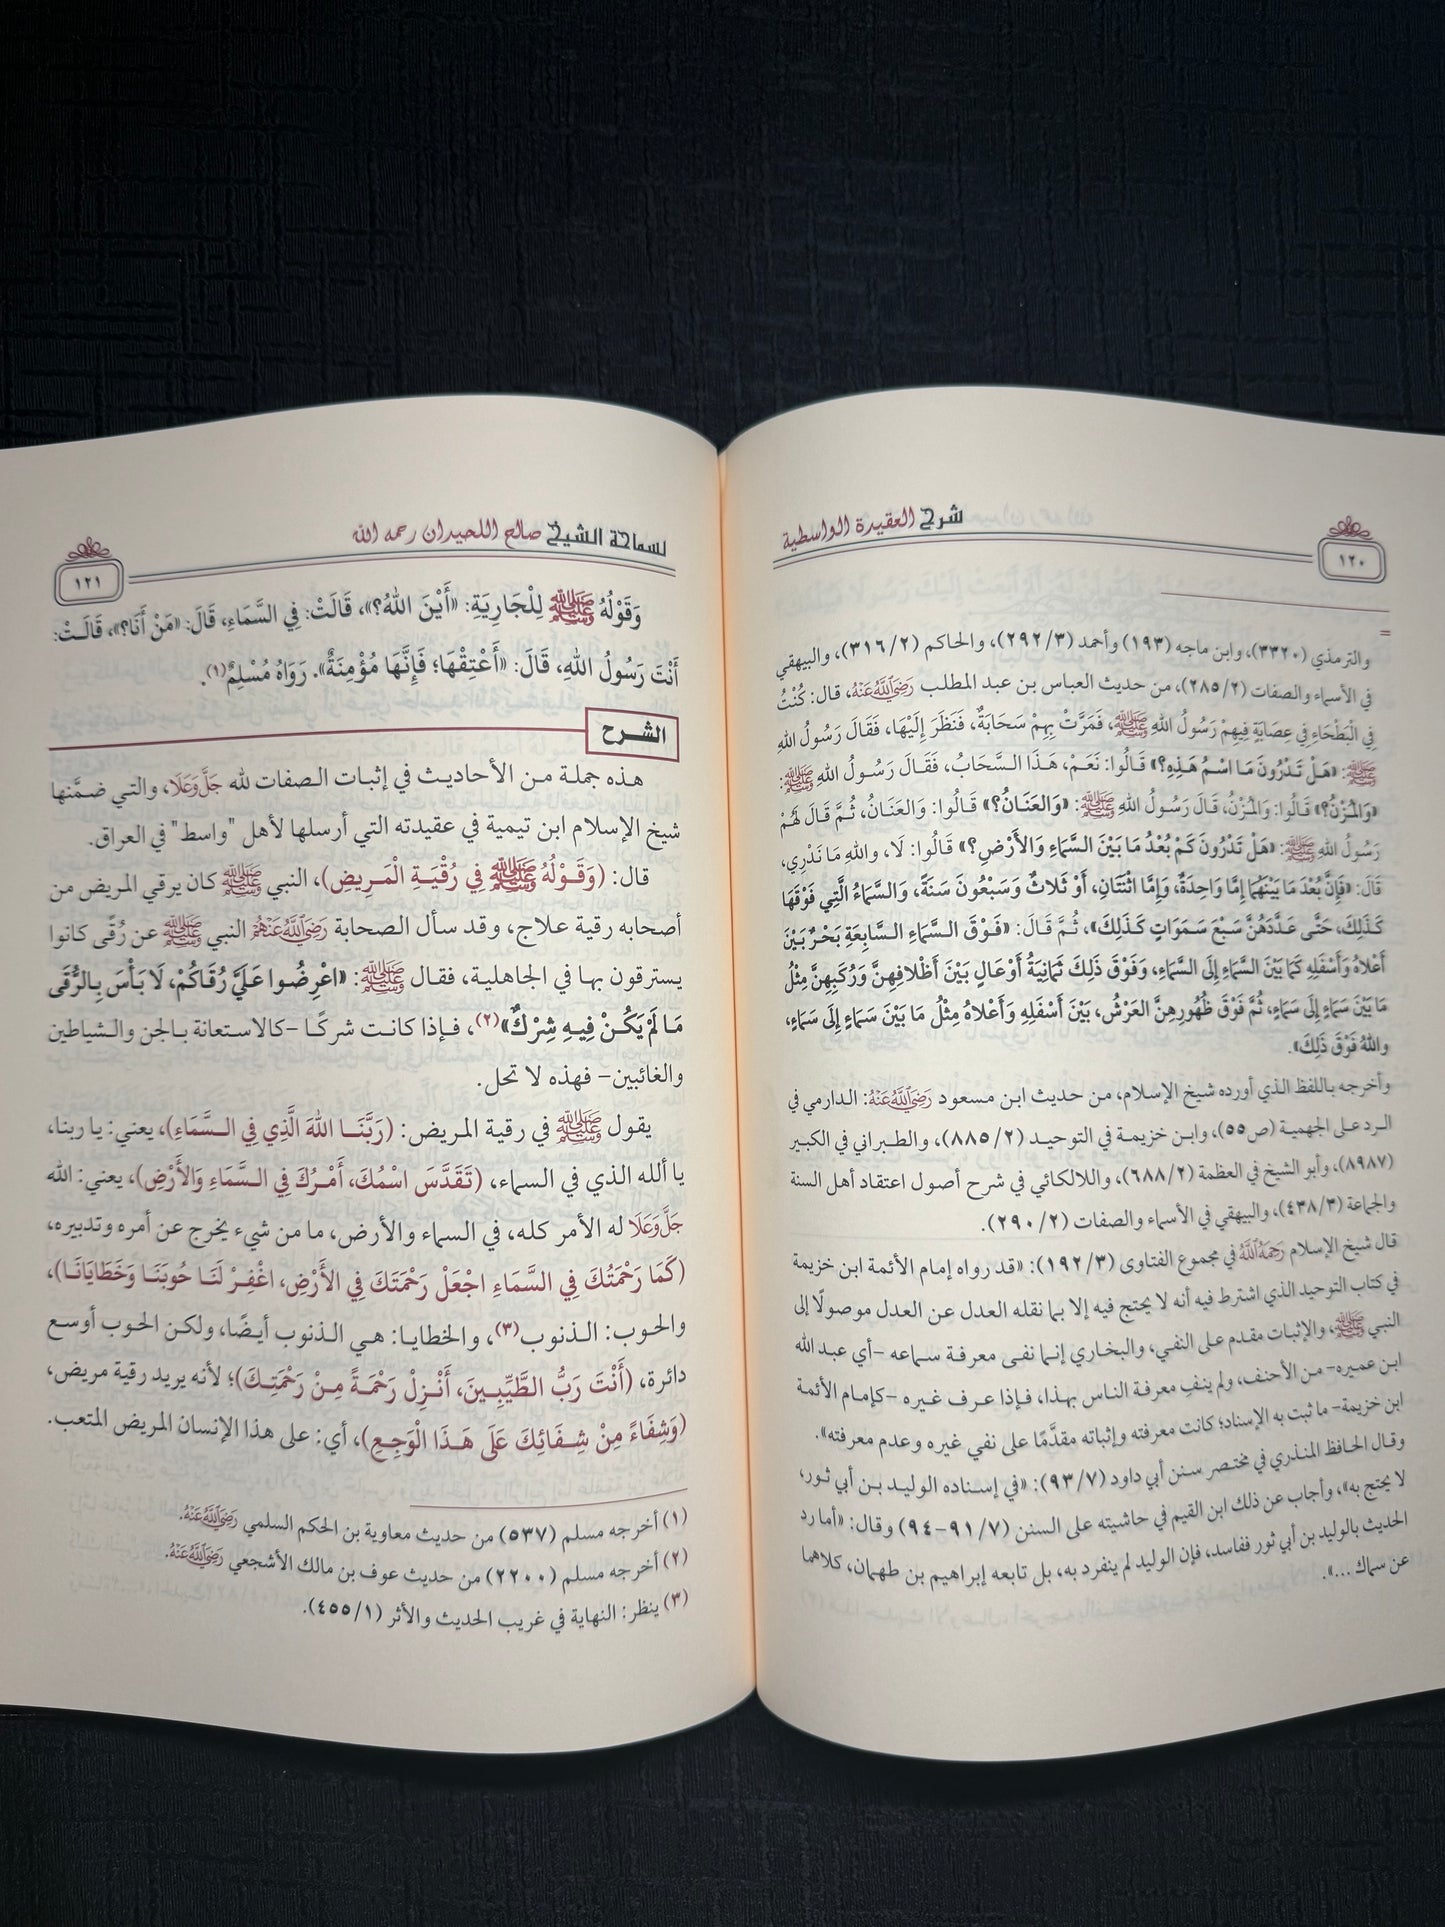 شرح العقيدة الواسطية
١٢٠
والترمذي (٣٣٢٠)، وابن ماجه (١٩٣) وأحمد (٢٩٢/٣)، والحاكم (٣١٦/٢)، والبيهقي
في الأسماء والصفات (٢٨٥/٢)، من حديث العباس بن عبد المطلب رَضِيَ اللَّهُ عَنْهُ، قال: كُنْتُ
فِي الْبَطْحَاءِ فِي عِصَابَةٍ فِيهِمْ رَسُولُ اللهِ ﷺ، فَمَرَّتْ بِهِمْ سَحَابَةٌ، فَنَظَرَ إِلَيْهَا، فَقَالَ رَسُولُ اللهِ
ﷺ: «هَلْ تَدْرُونَ مَا اسْمُ هَذِهِ؟» قَالُوا: نَعَمْ، هَذَا السَّحَابُ، فَقَالَ رَسُولُ اللهِ ﷺ:
«وَالمُزْنُ؟» قَالُوا: وَالمُزْنُ، قَالَ رَسُولُ اللهِ ﷺ: «وَالعَنَانُ؟» قَالُوا: وَالعَنَانُ، ثُمَّ قَالَ لَهُمْ
رَسُولُ اللهِ ﷺ: «هَلْ تَدْرُونَ كَمْ بُعْدُ مَا بَيْنَ السَّمَاءِ وَالأَرْضِ؟» قَالُوا: لَا، وَاللهِ مَا نَدْرِي،
قَالَ: «فَإِنَّ بُعْدَ مَا بَيْنَهُمَا إِمَّا وَاحِدَةٌ، وَإِمَّا اثْنَتَانِ، أَوْ ثَلَاثٌ وَسَبْعُونَ سَنَةً، وَالسَّمَاءُ الَّتِي فَوْقَهَا
كَذَلِكَ، حَتَّى عَدَّدَهُنَّ سَبْعَ سَمَوَاتٍ كَذَلِكَ»، ثُمَّ قَالَ: «فَوْقَ السَّمَاءِ السَّابِعَةِ بَحْرٌ بَيْنَ
أَعْلَاهُ وَأَسْفَلِهِ كَمَا بَيْنَ السَّمَاءِ إِلَى السَّمَاءِ، وَفَوْقَ ذَلِكَ ثَمَانِيَةُ أَوْعَالٍ بَيْنَ أَظْلَافِهِنَّ وَرُكَبِهِنَّ مِثْلُ
مَا بَيْنَ سَمَاءٍ إِلَى سَمَاءٍ، ثُمَّ فَوْقَ ظُهُورِهِنَّ العَرْشُ، بَيْنَ أَسْفَلِهِ وَأَعْلَاهُ مِثْلُ مَا بَيْنَ سَمَاءٍ إِلَى سَمَاءٍ،
وَاللهُ فَوْقَ ذَلِكَ».
وأخرجه باللفظ الذي أورده شيخ الإسلام، من حديث ابن مسعود رَضِيَ اللَّهُ عَنْهُ: الدارمي في
الرد على الجهمية (ص٥٥)، وابن خزيمة في التوحيد (٨٨٥/٢)، والطبراني في الكبير
(٨٩٨٧)، وأبو الشيخ في العظمة (٦٨٨/٢)، واللالكائي في شرح أصول اعتقاد أهل السنة
والجماعة (٤٣٨/٣)، والبيهقي في الأسماء والصفات (٢٩٠/٢).
قال شيخ الإسلام رَحِمَهُ اللَّهُ في مجموع الفتاوى (١٩٢/٣): «قد رواه إمام الأئمة ابن خزيمة
في كتاب التوحيد الذي اشترط فيه أنه لا يحتج فيه إلا بما نقله العدل عن العدل موصولًا إلى
النبي ﷺ، والإثبات مقدم على النفي، والبخاري إنما نفى معرفة سماعه -أي عبد الله
ابن عميره- من الأحنف، ولم ينفِ معرفة الناس بهذا، فإذا عرف غيره -كإمام الأئمة
ابن خزيمة- ما ثبت به الإسناد؛ كانت معرفته وإثباته مقدَّمًا على نفي غيره وعدم معرفته».
وقال الحافظ المنذري في مختصر سنن أبي داود (٩٣/٧): «في إسناده الوليد بن أبي ثور،
لا يحتج به»، وأجاب عن ذلك ابن القيم في حاشيته على السنن (٩١/٧-٩٤) وقال: «أما رد
الحديث بالوليد بن أبي ثور ففاسد، فإن الوليد لم ينفرد به، بل تابعه إبراهيم بن طهمان، كلاهما
عن سماك ...».
لسماحة الشيخ صالح اللحيدان رحمه الله
١٢١
وَقَوْلُهُ ﷺ لِلْجَارِيَةِ: «أَيْنَ اللهُ؟»، قَالَتْ: فِي السَّمَاءِ، قَالَ: «مَنْ أَنَا؟»، قَالَتْ:
أَنْتَ رَسُولُ اللهِ، قَالَ: «أَعْتِقْهَا؛ فَإِنَّهَا مُؤْمِنَةٌ». رَوَاهُ مُسْلِمٌ(١).
الشرح
هذه جملة من الأحاديث في إثبات الصفات لله جَلَّ وَعَلَا، والتي ضمَّنها
شيخ الإسلام ابن تيمية في عقيدته التي أرسلها لأهل "واسط" في العراق.
قال: (وَقَوْلُهُ ﷺ فِي رُقْيَةِ الْمَرِيضِ)، النبي ﷺ كان يرقي المريض من
أصحابه رقية علاج، وقد سأل الصحابة رَضِيَ اللَّهُ عَنْهُمْ النبي ﷺ عن رُقًى كانوا
يسترقون بها في الجاهلية، فقال ﷺ: «اعْرِضُوا عَلَيَّ رُقَاكُمْ، لَا بَأْسَ بِالرُّقَى
مَا لَمْ يَكُنْ فِيهِ شِرْكٌ»(٢)، فإذا كانت شركًا -كالاستعانة بالجن والشياطين
والغائبين- فهذه لا تحل.
يقول ﷺ في رقية المريض: (رَبَّنَا اللهَ الَّذِي فِي السَّمَاءِ)، يعني: يا ربنا،
يا ألله الذي في السماء، (تَقَدَّسَ اسْمُكَ، أَمْرُكَ فِي السَّمَاءِ وَالأَرْضِ)، يعني: الله
جَلَّ وَعَلَا له الأمر كله، في السماء والأرض، ما من شيء يخرج عن أمره وتدبيره،
(كَمَا رَحْمَتُكَ فِي السَّمَاءِ اجْعَلْ رَحْمَتَكَ فِي الأَرْضِ، اغْفِرْ لَنَا حُوبَنَا وَخَطَايَانَا)،
والحوب: الذنوب(٣)، والخطايا: هي الذنوب أيضًا، ولكن الحوب أوسع
دائرة، (أَنْتَ رَبُّ الطَّيِّبِينَ، أَنْزِلْ رَحْمَةً مِنْ رَحْمَتِكَ)؛ لأنه يريد رقية مريض،
(وَشِفَاءً مِنْ شِفَائِكَ عَلَى هَذَا الْوَجِعِ)، أي: على هذا الإنسان المريض المتعب.
(١) أخرجه مسلم (٥٣٧) من حديث معاوية بن الحكم السلمي رَضِيَ اللَّهُ عَنْهُ.
(٢) أخرجه مسلم (٢٢٠٠) من حديث عوف بن مالك الأشجعي رَضِيَ اللَّهُ عَنْهُ.
(٣) ينظر: النهاية في غريب الحديث والأثر (٤٥٥/١).